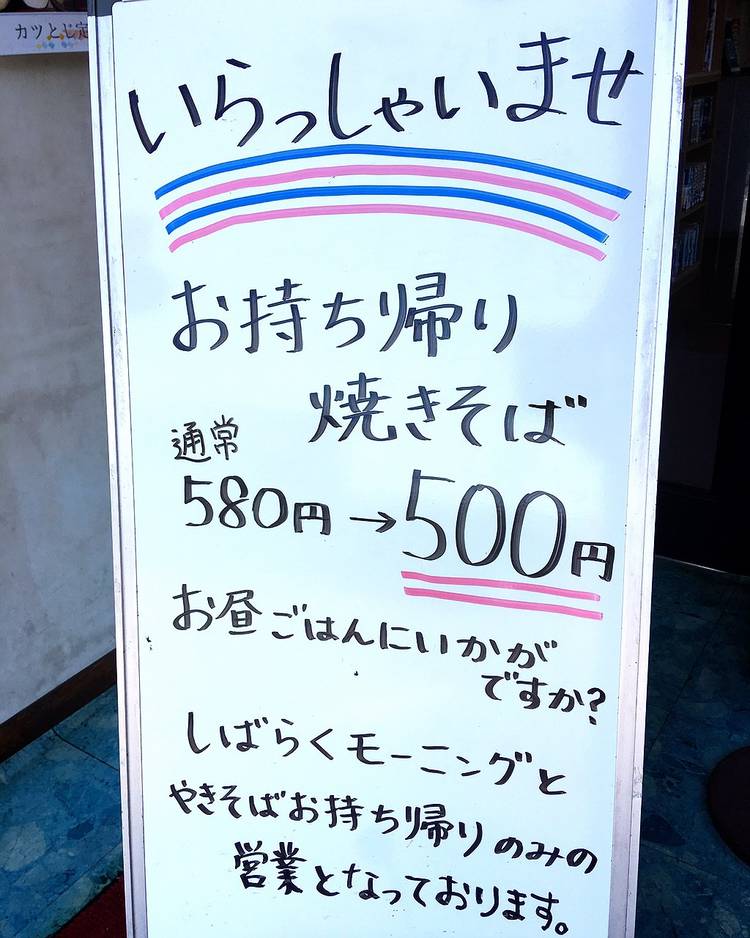 カツとじ定
いらっしゃいませ
お持ち帰り
焼きそば
通常
580円→500円
お昼ごはんにいかが
ですか?
しばらくモーニングと
やきそばお持ち帰りのみの
営業となっております。